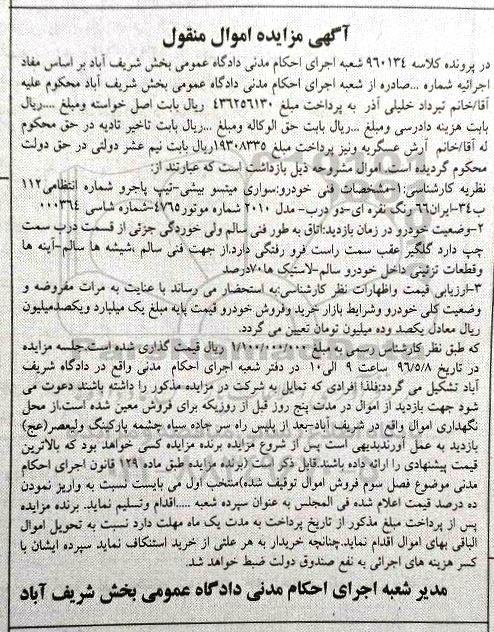 آگهی مزایده اموال منقول
در پرونده کلاسه ۹۶۰۱۳۴ شعبه اجرای احکام مدنی دادگاه عمومی بخش شریف آباد بر اساس مفاد
اجرائیه شماره ...صادره از شعبه اجرای احکام مدنی دادگاه عمومی بخش شریف آباد محکوم علیه
آقا/خانم تیرداد خلیلی آذر به پرداخت مبلغ ۴۳۶۲۵۶۱۳۰ ریال بابت اصل خواسته ومبلغ ....ریال
بابت هزینه دادرسی ومبلغ ...ریال بابت حق الوکاله ومبلغ ...ریال بابت تاخیر تادیه در حق محکوم
له آقا/خانم آرش عسگریه ونیز پرداخت مبلغ ۱۹۳۰۸۳۳۵ریال بابت نیم عشر دولتی در حق دولت
محکوم گردیده است.اموال مشروحه ذیل بازداشت است که عبارتند از:
نظریه کارشناسی:۱-مشخصات فنی خودرو:سواری میتسو بیشی-تیپ پاجرو شماره انتظامی۱۱۲
ب۳۴-ایران۶۶رنگ نقره ای-دو درب- مدل ۲۰۱۰ شماره موتور۴۷۶۵-شماره شاسی ۰۰۰۳۶۴
۲-وضعیت خودرو در زمان بازدید:اتاق به طور فنی سالم ولی خوردگی جزئی از قسمت درب سمت
چپ دارد گلگیر عقب سمت راست فرو رفتگی دارد.از جهت فنی سالم ،شیشه ها سالم-آینه ها
وقطعات تزئینی داخل خودرو سالم-لاستیک ها۷۰درصد
۳-ارزیابی قیمت واظهارات نظر کارشناسی:به استحضار می رساند با عنایت به مرات مفروضه و
وضعیت کلی خودرو وشرایط بازار خرید وفروش خودرو قیمت پایه مبلغ یک میلیارد ویکصدمیلیون
ریال معادل یکصد وده میلیون تومان تعیین می گردد.
که طبق نظر کارشناس رسمی به مبلغ ۱/۱۰۰/۰۰۰/۰۰۰ ریال قیمت گذاری شده است.جلسه مزایده
در تاریخ ۹۶/۵/۸ ساعت ۹ الی۱۰ در دفتر شعبه اجرای احکام مدنی واقع در دادگاه شریف
آباد تشکیل می گردد:فلذا افرادی که تمایل به شرکت در مزایده مذکور را داشته باشند دعوت می
شود جهت بازدید از اموال در مدت پنج روز قبل از روزیکه برای فروش معین شده است،از محل
نگهداری اموال واقع در شریف آباد-بعد از پلیس راه سر جاده سیاه چشمه پارکینگ ولیعصر(عج)
بازدید به عمل آورندبدیهی است پس از شروع مزایده برنده مزایده کسی خواهد بود که بالاترین
قیمت پیشنهادی را ارائه داده باشند.قابل ذکر است (برنده مزایده طبق ماده ۱۲۹ قانون اجرای احکام
مدنی موضوع فصل سوم فروش اموال توقیف شده)منتخب اول می بایست نسبت به واریز نمودن
ده درصد قیمت اعلام شده فی المجلس به عنوان سپرده شعبه .....اقدام وتسلیم نماید. برنده مزایده
پس از پرداخت مبلغ مذکور از تاریخ پرداخت به مدت یک ماه مهلت دارد نسبت به تحویل اموال
الباقی بهای اموال اقدام نماید.چنانچه خریدار به هر علتی از خرید استنکاف نماید سپرده ایشان با
کسر هزینه های اجرائی به نفع صندوق دولت ضبط خواهد شد.
مدیر شعبه اجرای احکام مدنی دادگاه عمومی بخش شریف آباد